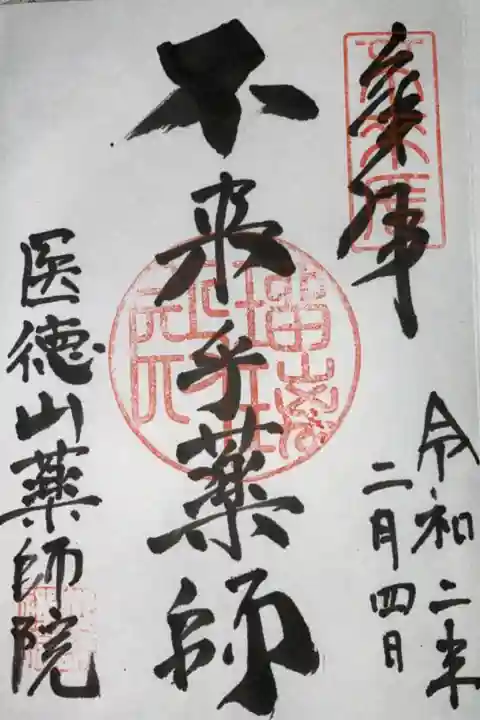 奉拝
令和二年
二月四日
不来乎薬師
医徳山薬師院